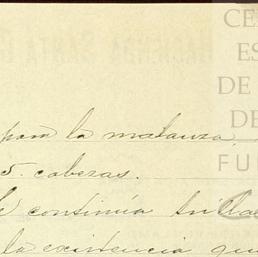 CE
ES
DE
DE
FU
para la matanza,
5. cabezas.
continúa trilla
la existencia que